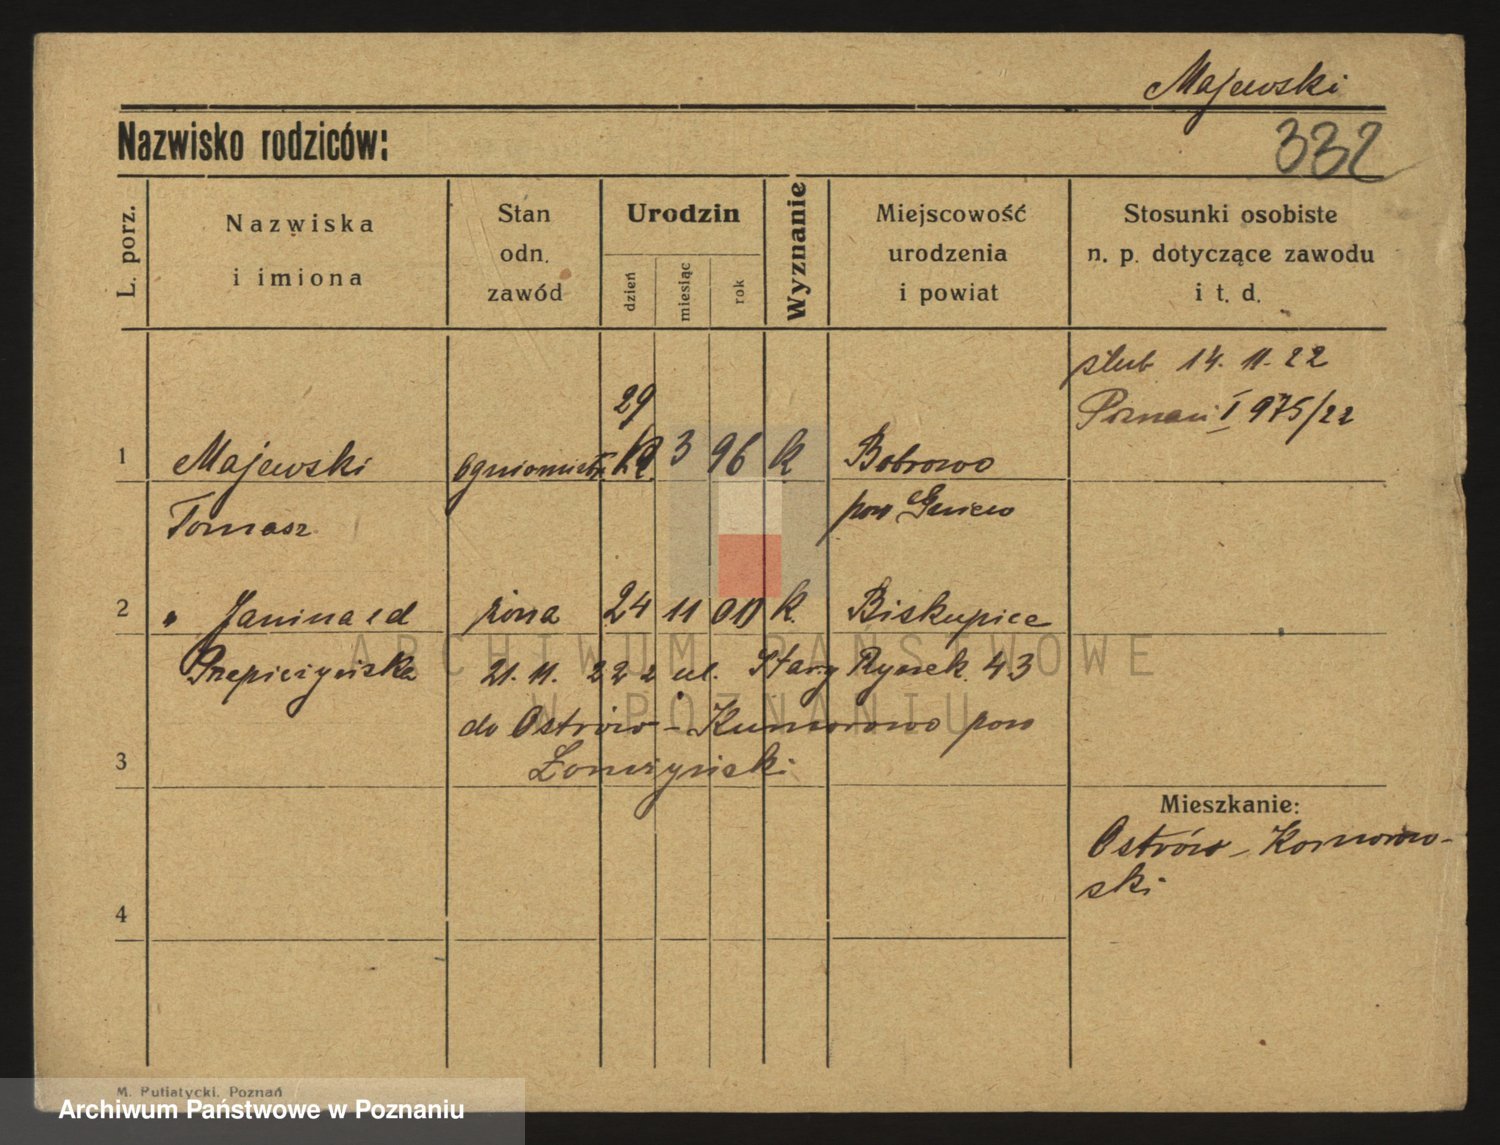 Majewski
332
Nazwisko rodziców:
L. porz.
Nazwiska
i imiona
Stan
odn.
zawód
Urodzin
dzień
miesiąc
rok
Wyznanie
Miejscowość
urodzenia
i powiat
Stosunki osobiste
n. p. dotyczące zawodu
i t. d.
ślub 14. 11. 22
Poznań I 975/22
29
1 Majewski ogniomistrz 3 96 k Bobrowo
Tomasz pow Gniew
2 " Janina z d żona 24 11 00 k. Biskupice
21. 11. 22 z ul. Stary Rynek 43
do Ostrów - Kumorowo pow
Łomżyński
3
Mieszkanie:
Ostrów - Komorow-
ski
4
M. Putiatycki, Poznań
ARCHIWUM PAŃSTWOWE
W POZNANIU
Archiwum Państwowe w Poznaniu